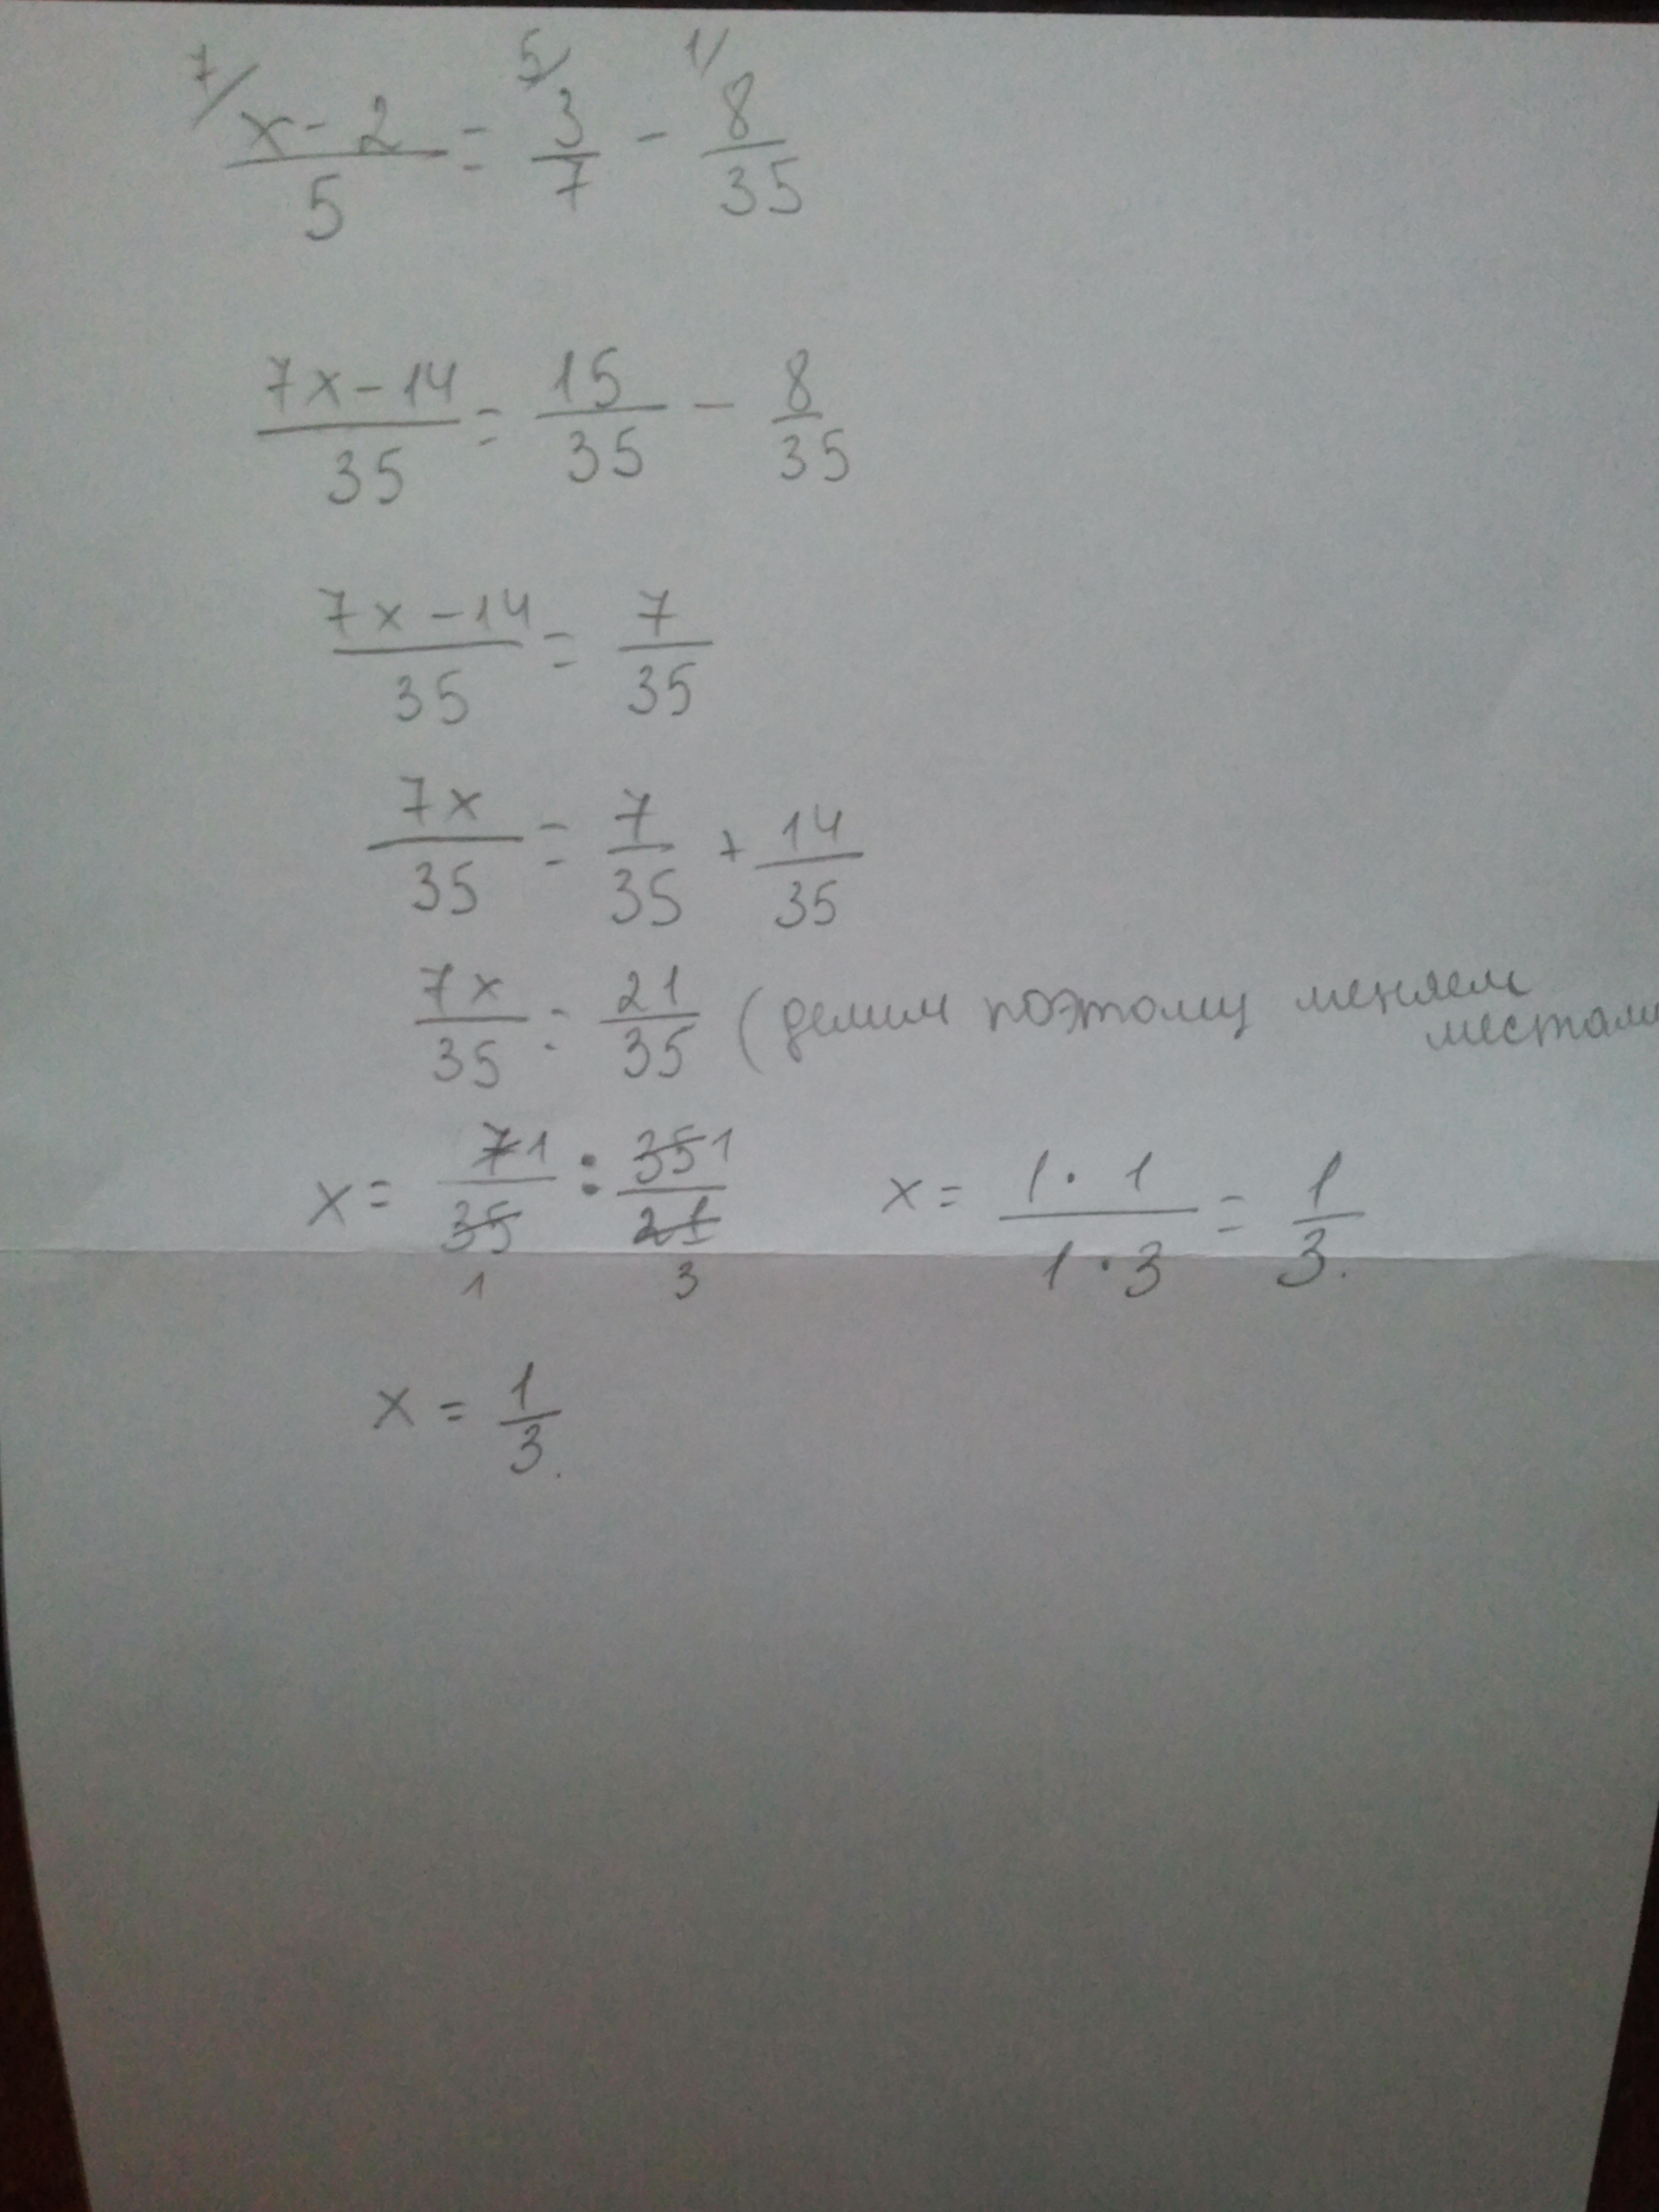 7/ 5/ 1/
x-2/5 = 3/7 - 8/35
7x-14/35 = 15/35 - 8/35
7x-14/35 = 7/35
7x/35 = 7/35 + 14/35
7x/35 : 21/35 (делим поэтому меняем
местами
x = 71/351 : 351/213 x = 1·1/1·3 = 1/3.
x = 1/3.